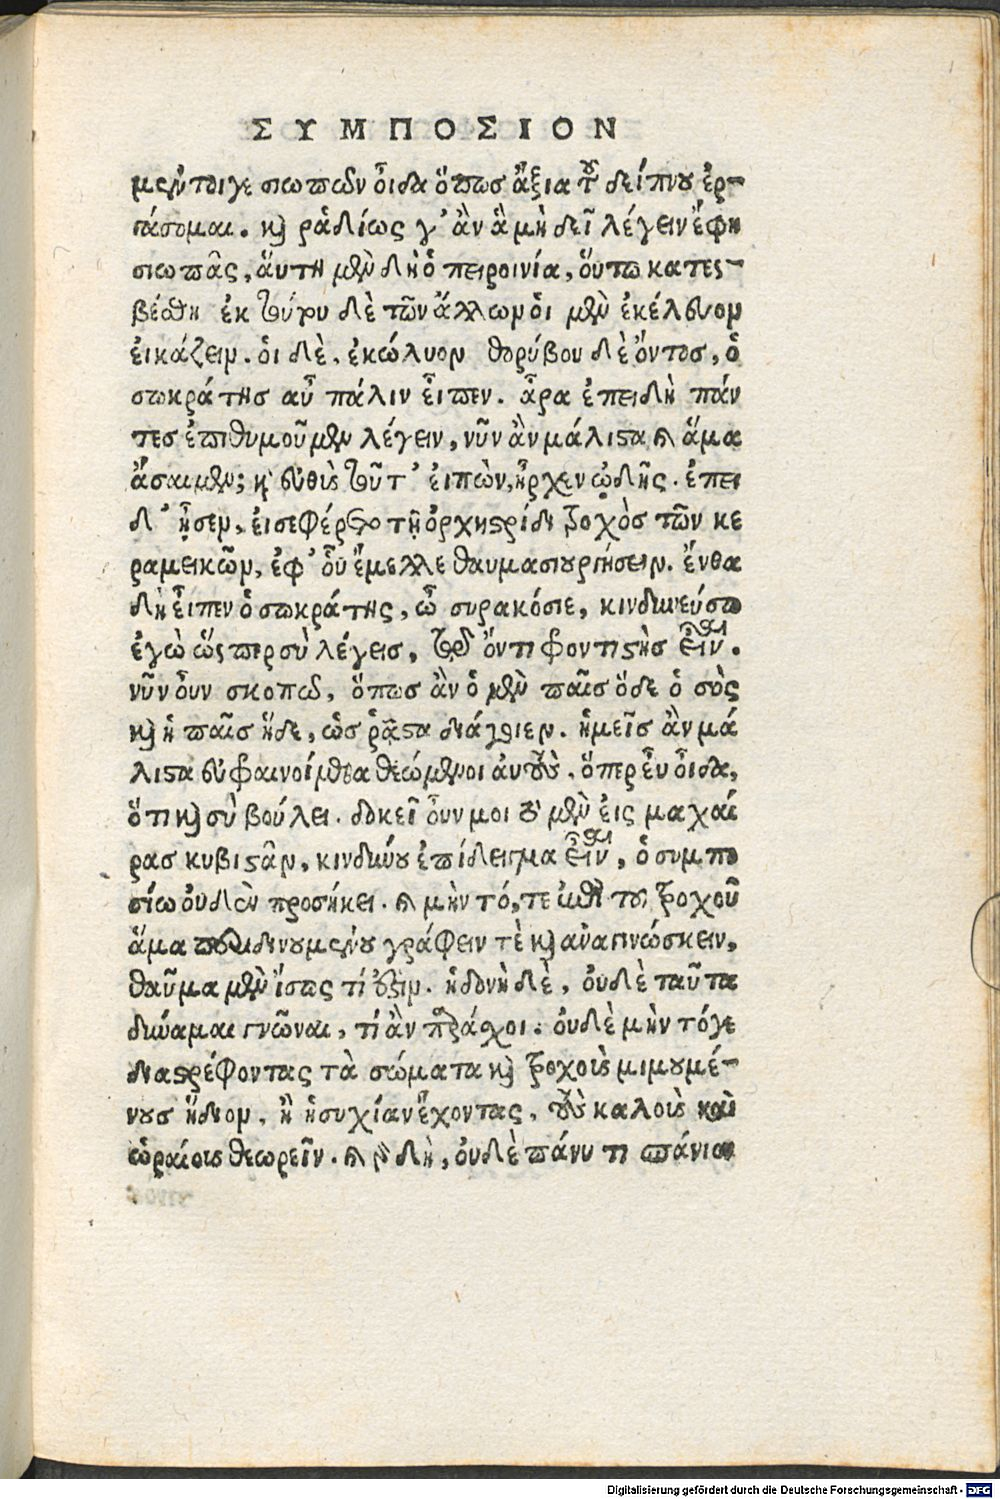 ΣΥΜΠΟΣΙΟΝ
μέντοιγε σιωπῶν οἶδα ὅπως ἄξια τοῦ δείπνου ἐρ-
γάσομαι. καὶ ῥᾳδίως γ' ἂν ἃ μὴ δεῖ λέγειν ἔφη
σιωπᾶς, ἅυτη μὲν δὴ ἡ πειροινία, ὅυτω κατεσ-
βέσθη ἐκ τούτου δὲ τῶν ἄλλων ὁι μὲν ἐκέλευον
ἐικάζειν. ὁι δὲ, ἐκώλυον θορύβου δὲ ὄντος, ὁ
σωκράτης αὖ πάλιν εἶπεν. ἆρα ἐπειδὴ πάν
τες ἐπιθυμοῦμεν λέγειν, νῦν ἂν μάλιστα καὶ ἅμα
ἄσαιμεν; καὶ εὐθὺς τοῦτ' ἐιπὼν, ἦρχεν ᾠδῆς. ἐπει
δ' ᾖσεν, ἐισεφέρετο τῇ ὀρχηστρίδι τροχὸς τῶν κε
ραμεικῶν, ἐφ' οὗ ἔμελλε θαυμασιουργήσειν. ἔνθα
δὴ εἶπεν ὁ σωκράτης, ὦ συρακόσιε, κινδυνεύσω
ἐγὼ ὥσπερ σὺ λέγεις, τῷδε ὄντι φοντιστὴς εἶναι.
νῦν οὖν σκοπῶ, ὅπως ἂν ὁ μὲν παῖς ὅδε ὁ σὸς
καὶ ἡ παῖς ἥδε, ὡς ῥᾷστα διάγοιεν. ἡμεῖς ἂν μά
λιστα εὐφραινοίμεθα θεώμενοι ἀυτοὺς. ὅπερ εὖ οἶδα,
ὅτι καὶ σὺ βούλει. δοκεῖ οὖν μοι τὸ μὲν ἐις μαχαί
ρας κυβιστᾶν, κινδύνου ἐπίδειγμα εἶναι, ὁ συμπο
σίω ὀυδὲν προσήκει. καὶ μὴν τό, τε ἐπὶ τοῦ τροχοῦ
ἅμα περιδινουμένου γράφειν τὲ καὶ αναγινώσκειν,
θαῦμα μὲν ἴσως τί ἐστιν. ἡδονὴ δὲ, ὀυδὲ ταῦτα
δύναμαι γνῶναι, τί ἂν παράσχοι. ὀυδὲ μὴν τόγε
διαστρέφοντας τὰ σώματα καὶ τροχοὺς μιμουμέ-
νους ἥδιον, ἢ ἡσυχίαν ἔχοντας, τοὺς καλοὺς καὶ
ὡραίους θεωρεῖν. καὶ γὰρ δὴ, ὀυδὲ πάνυ τι σπάνιον
Digitalisierung gefördert durch die Deutsche Forschungsgemeinschaft - DFG